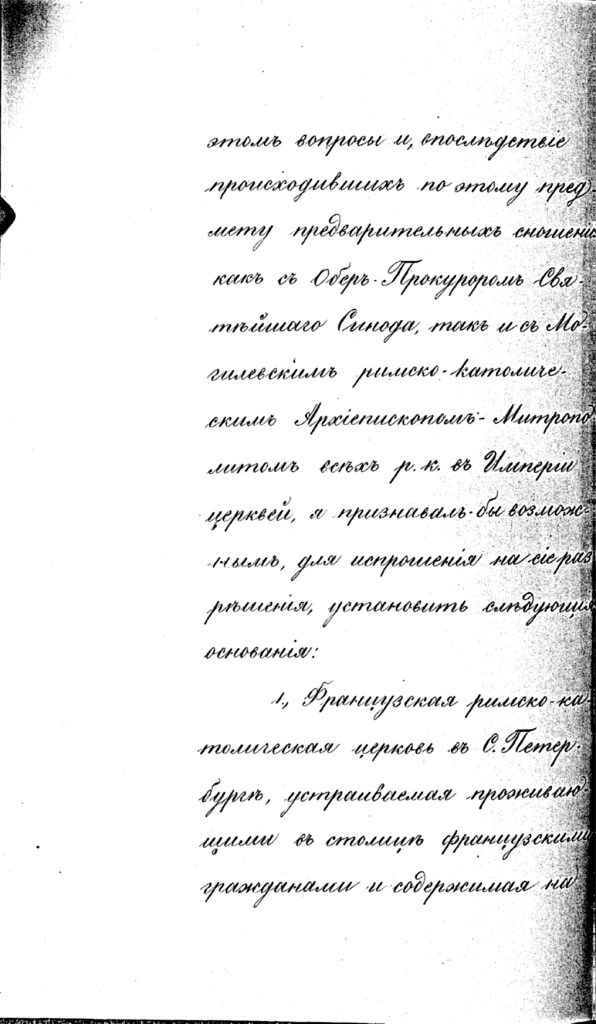 этомъ вопросы и, впослѣдствіе
происходившихъ по этому пред-
мету предварительныхъ сношеній
какъ съ Оберъ-Прокуроромъ Свя-
тѣйшаго Синода, такъ и съ Мо-
гилевскимъ римско-католиче-
скимъ Архіепископомъ-Митропо-
литомъ всѣхъ р. к. въ Имперіи
церквей, я признавалъ-бы возмож-
нымъ, для испрошенія на сіе раз
рѣшенія, установить слѣдующія
основанія:
1., Французская римско-ка-
толическая церковь въ С. Петер-
бургѣ, устраиваемая проживаю-
щими въ столицѣ французскими
гражданами и содержимая на